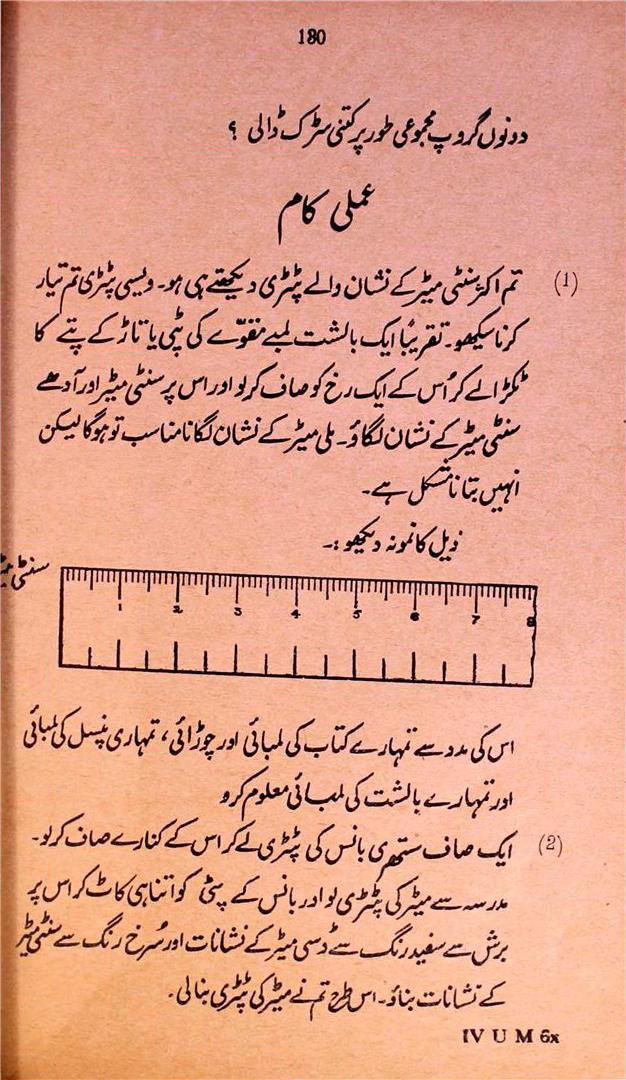 180
دونوں گروپ مجموعی طور پر کتنی سڑک ڈالی ؟
عملی کام
(1) تم اکثر سنٹی میٹر کے نشان والے پٹڑی دیکھتے ہی ہو۔ ویسی پٹڑی تم تیار
کرنا سیکھو۔ تقریباً ایک بالشت لمبے مقوّے کی پٹی یا تاڑ کے پتے کا
ٹکڑا لے کر اُس کے ایک رخ کو صاف کرلو اور اس پر سنٹی میٹر اور آدھے
سنٹی میٹر کے نشان لگاؤ۔ ملی میٹر کے نشان لگانا مناسب تو ہوگا لیکن
انہیں بتانا مشکل ہے۔
ذیل کا نمونہ دیکھو :۔
سنٹی
1 2 3 4 5 6 7 8
اس کی مدد سے تمہارے کتاب کی لمبائی اور چوڑائی، تمہاری پنسل کی لمبائی
اور تمہارے بالشت کی لمبائی معلوم کرو
(2) ایک صاف ستھری بانس کی پٹڑی لے کر اس کے کنارے صاف کرلو۔
مدرسہ سے میٹر کی پٹڑی لو اور بانس کے پٹی کو اتنا ہی کاٹ کر اس پر
برش سے سفید رنگ سے ڈسی میٹر کے نشانات اور سُرخ رنگ سے سنٹی میٹر
کے نشانات بناؤ۔ اس طرح تم نے میٹر کی پٹڑی بنالی۔
IV U M 6x